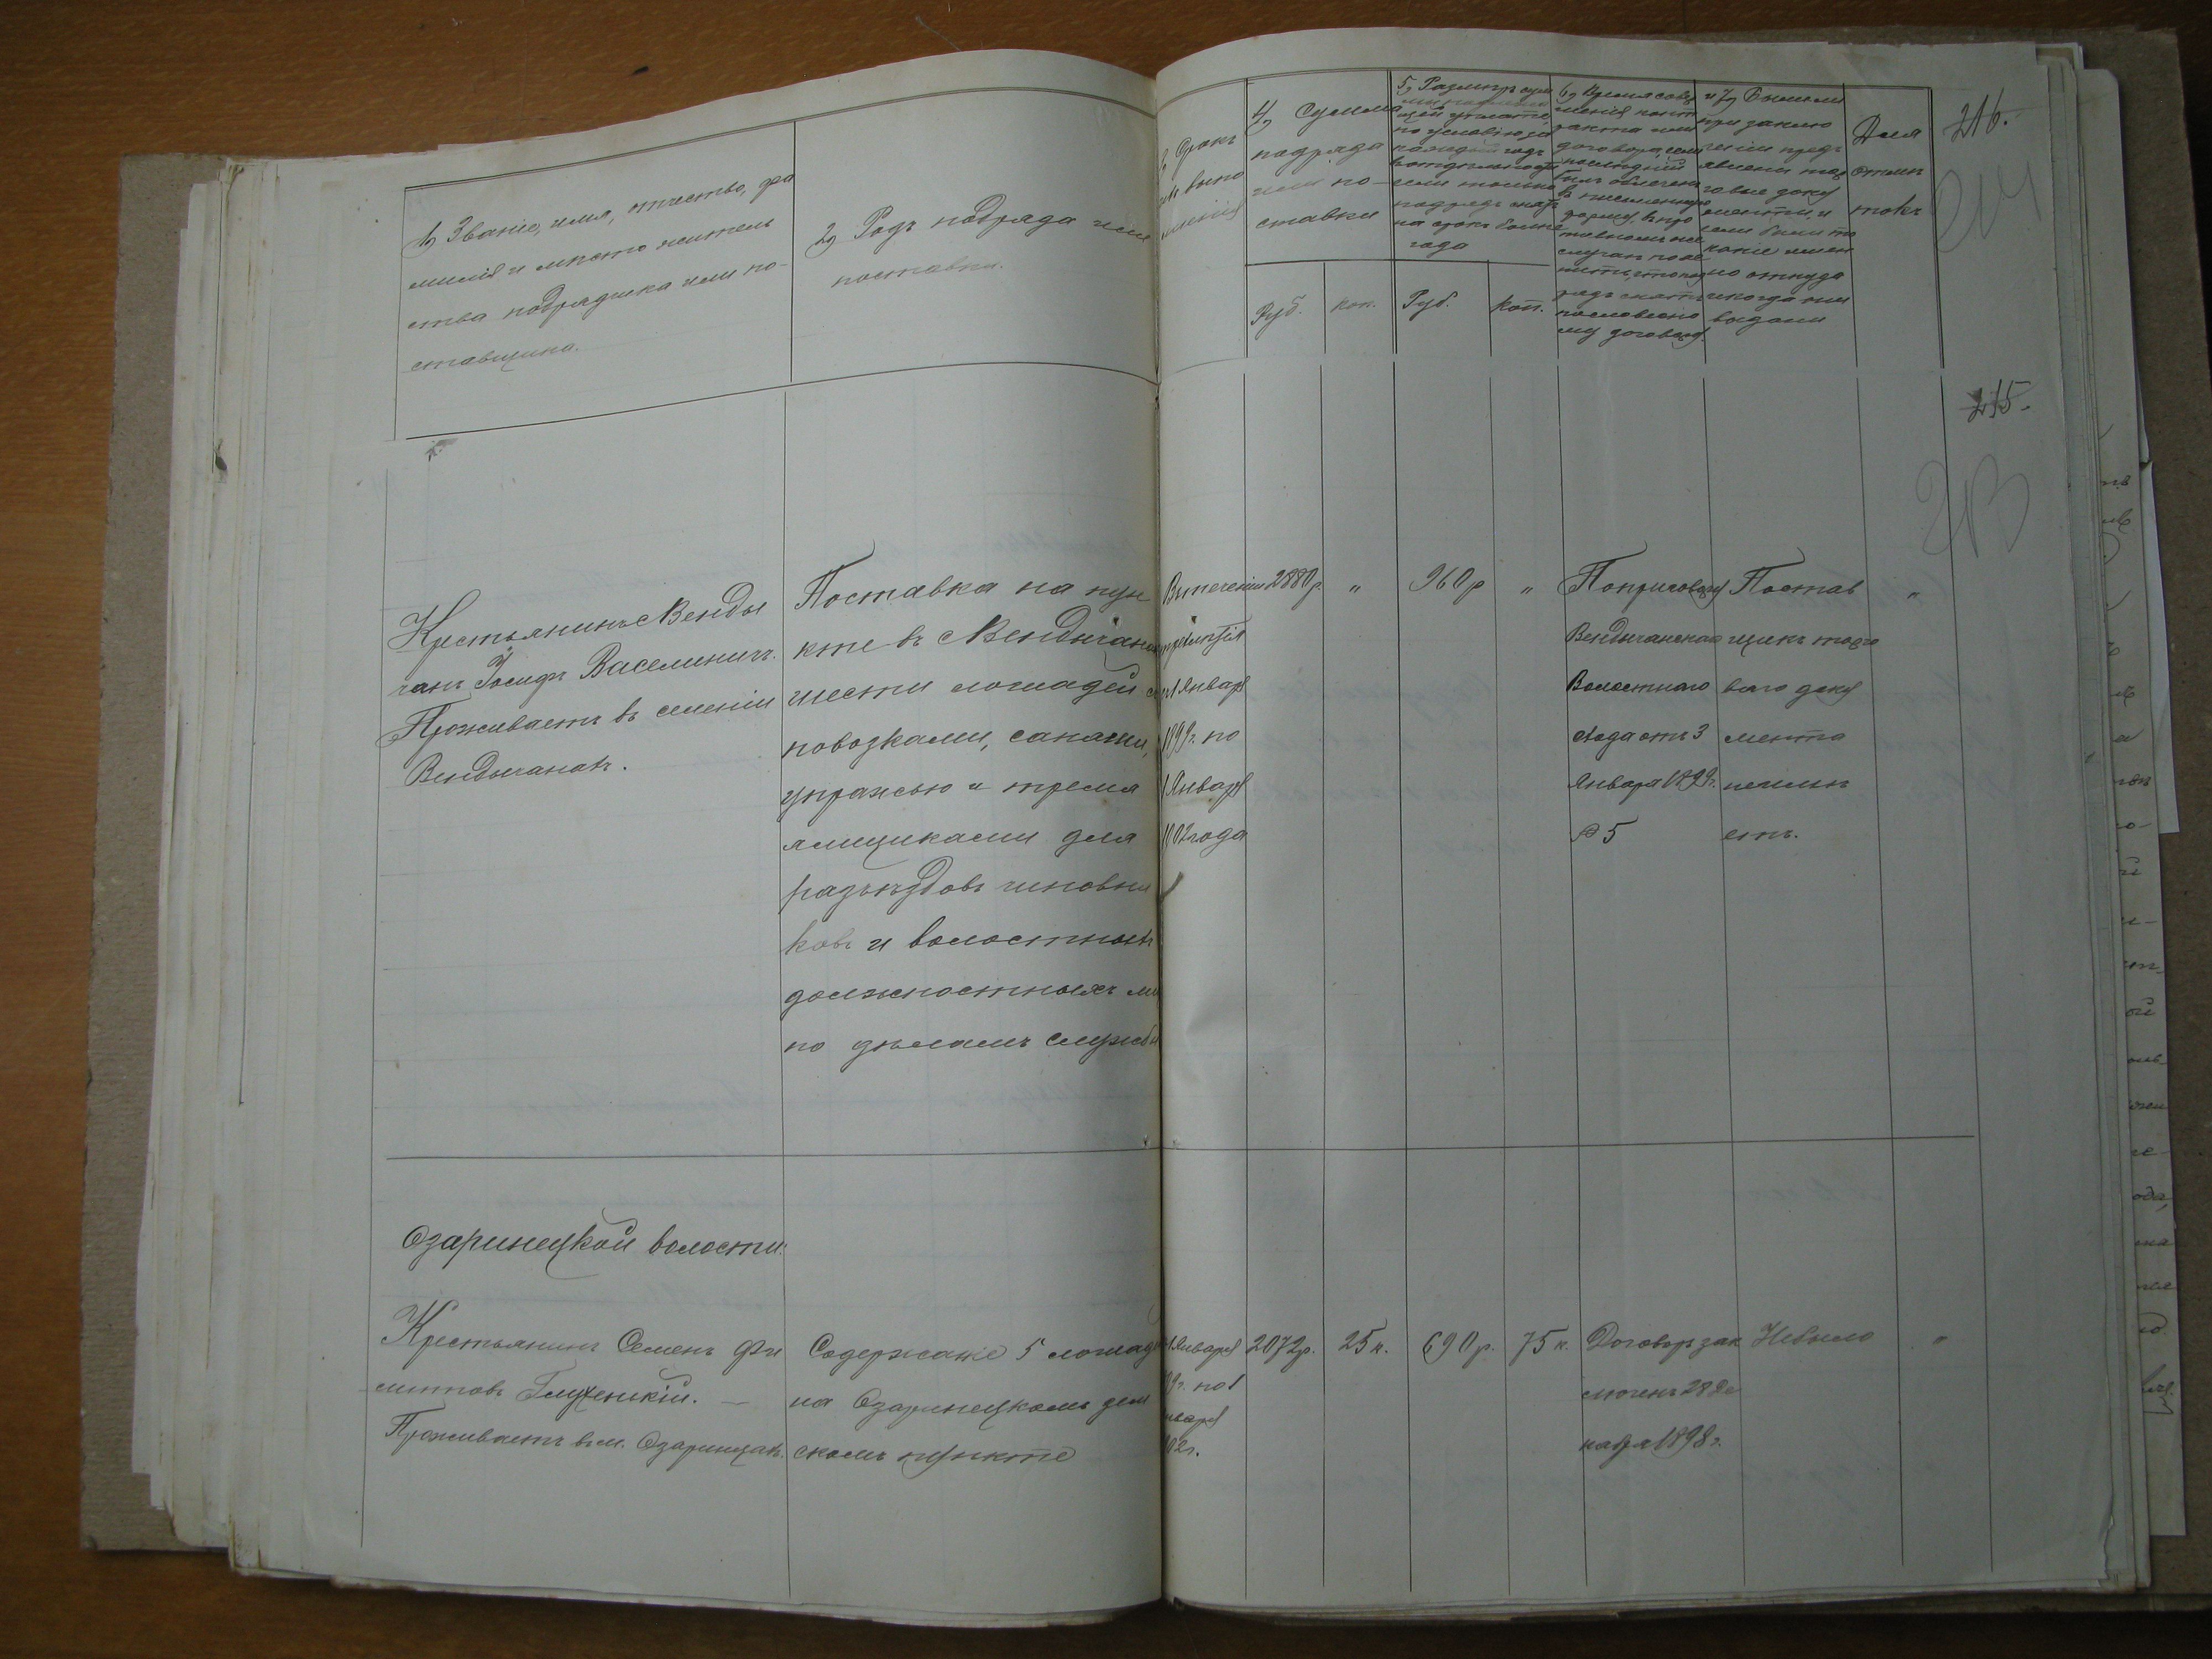 1) Званіе, имя, отчество, фа
милія и мѣсто житель
ства подрядчика или по-
ставщика.
2) Родъ подряда или
поставки.
Срокъ
выпо
ненія
4) Сумма
подряда
или по-
ставки
Руб.
коп.
5) Размѣръ сум
по условію за
каждый годъ
если только
подрядъ снятъ
на срокъ болѣе
года
Руб.
Коп.
6) Время совер
шенія конт
ракта или
договора, если
послѣдній
былъ облеченъ
въ письменную
форму, въ про
тивномъ же
случаѣ поя
рядъ снятъ
по словесно
му договору.
и 7) Были ли
при заклю
ченіи предъ
явлены тор
говые доку
менты, и
если были то
какіе имен
но откуда
и когда они
выданы
Для
отмѣ
токъ
216.
214
215.
213
Крестьянинъ с. Венды
чанъ Іосифъ Василишинъ.
Проживаетъ въ селеніи
Вендычанахъ.
Поставка на пун
кте въ с. Вендычанахъ
шести лошадей съ
повозками, санями,
упряжью и тремя
ямщиками для
разъѣздовъ чиновни
ковъ и волостныхъ
должностныхъ ли
по дѣламъ службы
Въ теченіи
трехлѣтія
съ 1 Января
1899 г. по
1 Января
1902 года
2880 р.
"
960 р
"
По приговору
Вендычанскаго
Волостнаго
схода отъ 3
Января 1899 г.
№ 5
Постав
щикъ торго
ваго доку
мента
неимѣ
етъ.
"
Озаринецкой волости:
Крестьянинъ Семенъ Фи
липповъ
Проживаетъ въ м. Озаринцахъ.
Содержаніе 5 лошадей
на Озаринецкомъ зем
скомъ пункте
1 Января
99 г. по 1
Января
902 г.
2072 р.
25 к.
690 р.
75 к.
Договоръ зак
люченъ 28 Де
кабря 1898 г.
Небыло
"